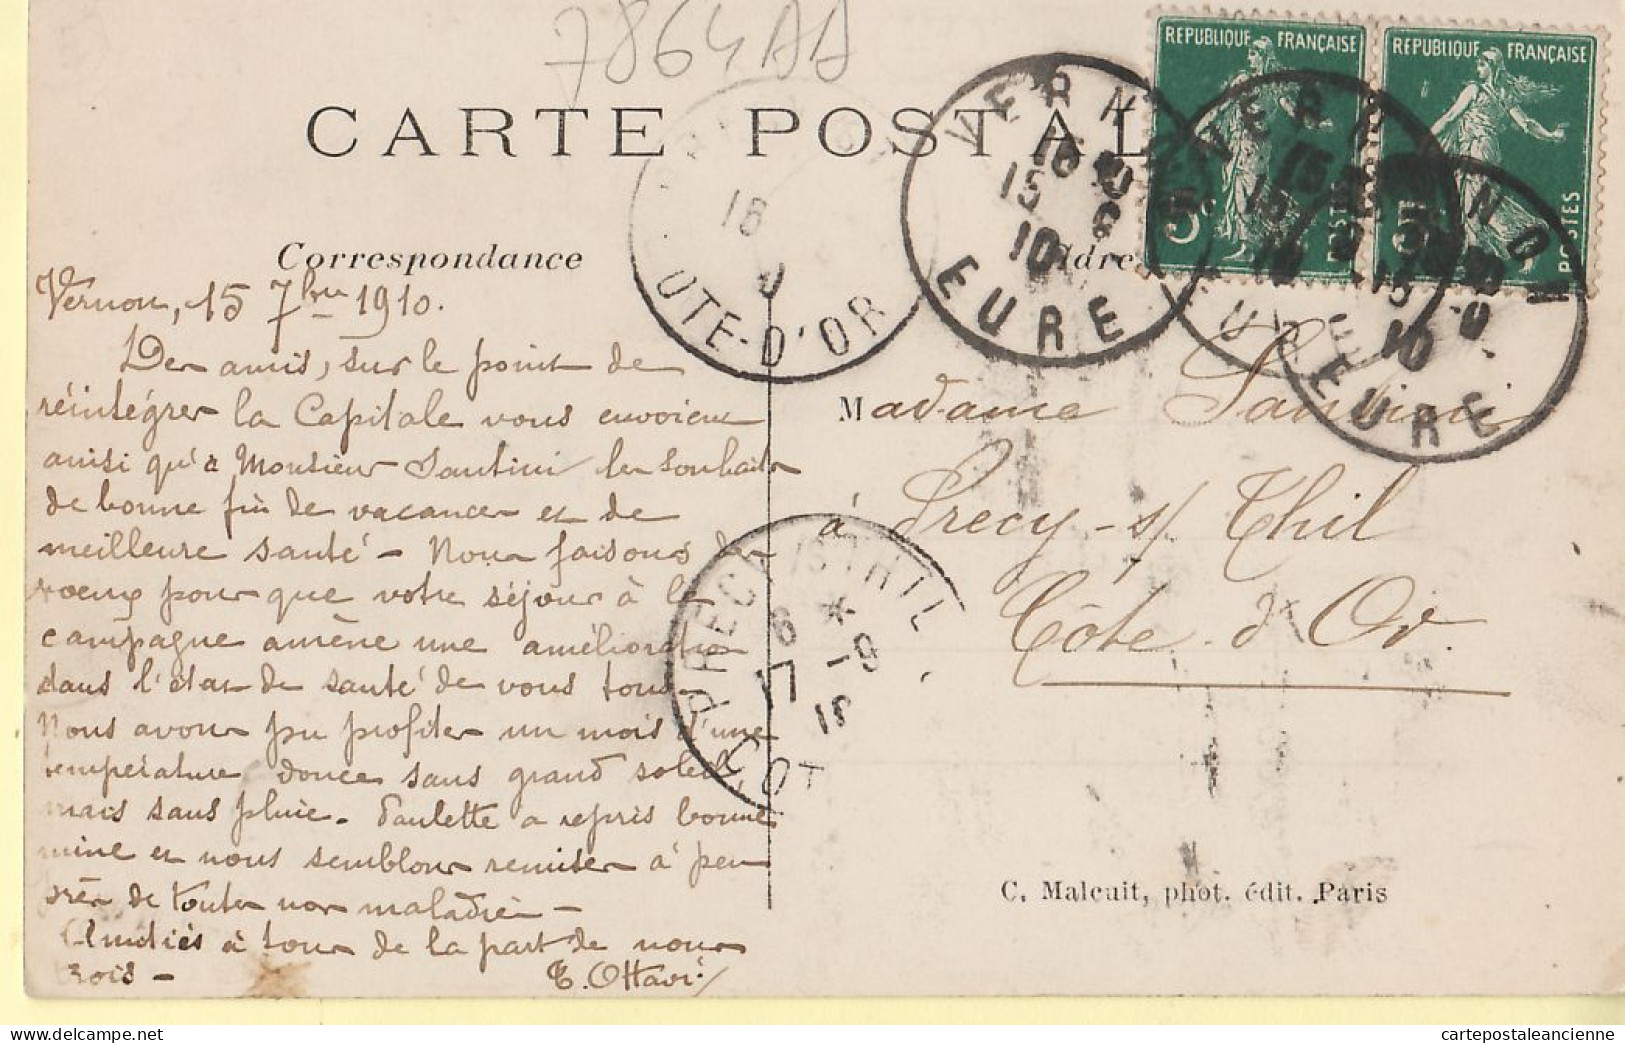 7864AA
CARTE POSTALE
REPUBLIQUE FRANÇAISE
POSTES
5c
REPUBLIQUE FRANÇAISE
POSTES
VERNON
15
10
EURE
VERNON
EURE
VERNON
10
EURE
18
CÔTE-D'OR
Correspondance
Adresse
Vernon, 15 7bre 1910.
Des amis, sur le point de
réintégrer la Capitale vous envoient
ainsi qu'à Monsieur Santini les souhaits
de bonne fin de vacances et de
meilleure santé - Nous faisons des
voeux pour que votre séjour à la
campagne amène une amélioration
dans l'état de santé de vous tous.
Nous avons pu profiter un mois d'une
température douce sans grand soleil,
mais sans pluie. Paulette a repris bonne
mine et nous semblons remiser à peu
près de toutes nos maladies -
Amitiés à tous de la part de nous
trois -
E. Ottavi
Madame Santini
à Precy-s/ Thil
Côte d'Or.
PRECY S/STHIL
17
COT
C. Malcuit, phot. édit. Paris
delcampe.net
cartepostaleancienne